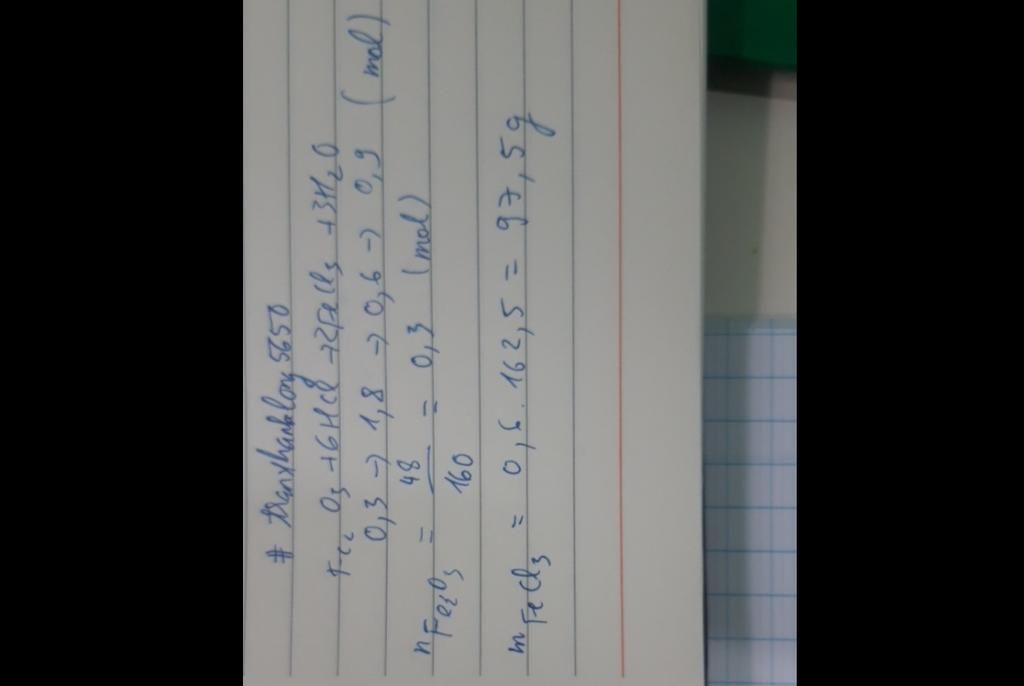 # tranthanhlong5650
Fe₂O₃ + 6HCl → 2FeCl₃ + 3H₂O
0,3 → 1,8 → 0,6 → 0,9 (mol)
nFe₂O₃ = 48/160 = 0,3 (mol)
mFeCl₃ = 0,6 . 162,5 = 97,5g